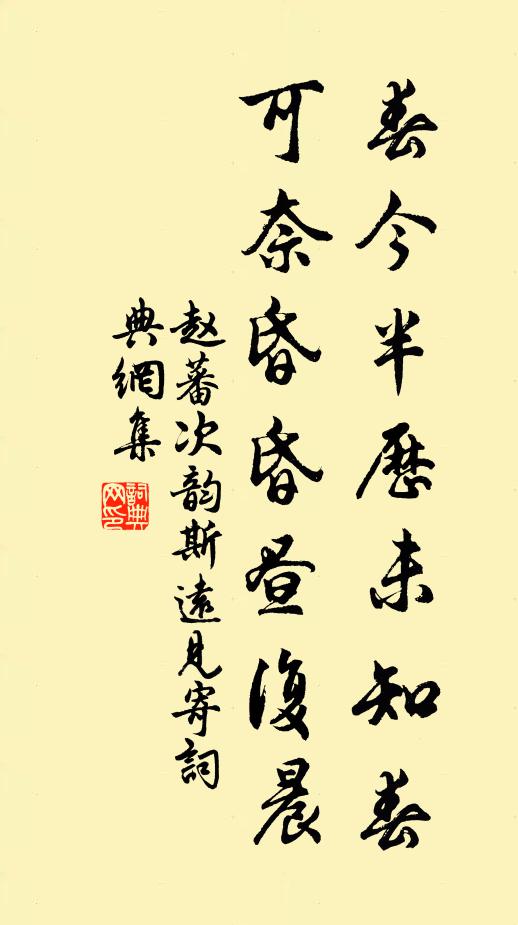 春今半歷未知春
可奈昏昏昼復晨
赵蕃次韵斯遠見寄詞
典網集
詞典
网印